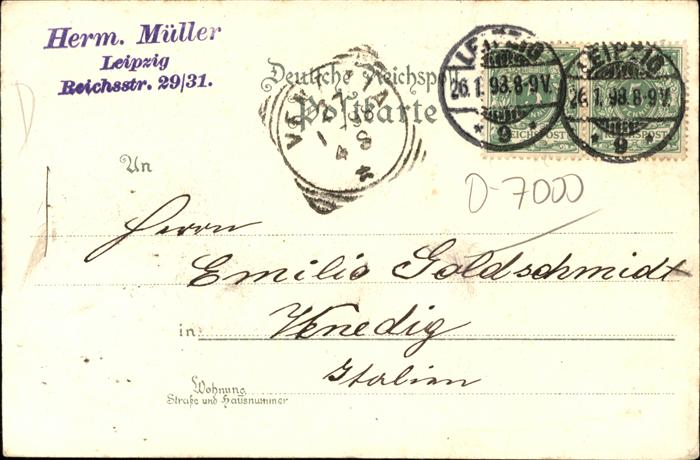 Herm. Müller
Leipzig
Reichsstr. 29/31.
Deutsche Reichspost
Postkarte
LEIPZIG
26.1.98.8-9V.
* 9 *
REICHSPOST
LEIPZIG
26.1.98.8-9V.
* 9 *
REICHSPOST
D-7000
An
Herrn
Emilio Goldschmidt
in Venedig
Italien
Wohnung
Straße und Hausnummer